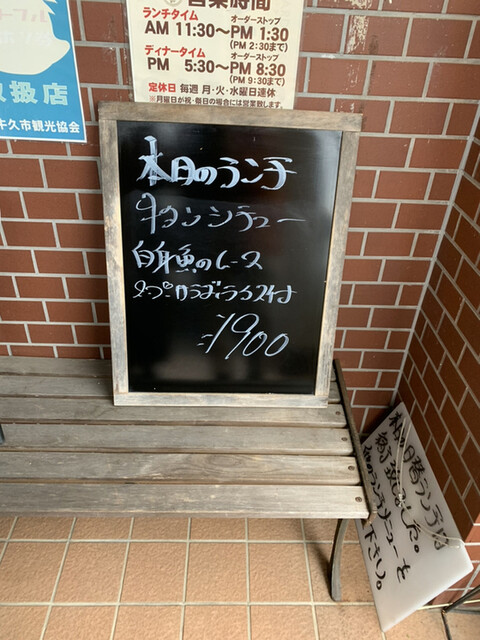 営業時間
ランチタイム
オーダーストップ
AM 11:30〜PM 1:30
(PM 2:30まで)
ディナータイム
オーダーストップ
PM 5:30〜PM 8:30
(PM 9:30まで)
定休日 毎週 月・火・水曜日連休
※月曜日が祝・祭日の場合には営業致します。
取扱店
牛久市観光協会
本月のランチ
牛タンシチュー
白身魚のムース
スープ
ライス付
¥1900
本日
ランチは
終了致しました。
他のランチメニューを
下さい。